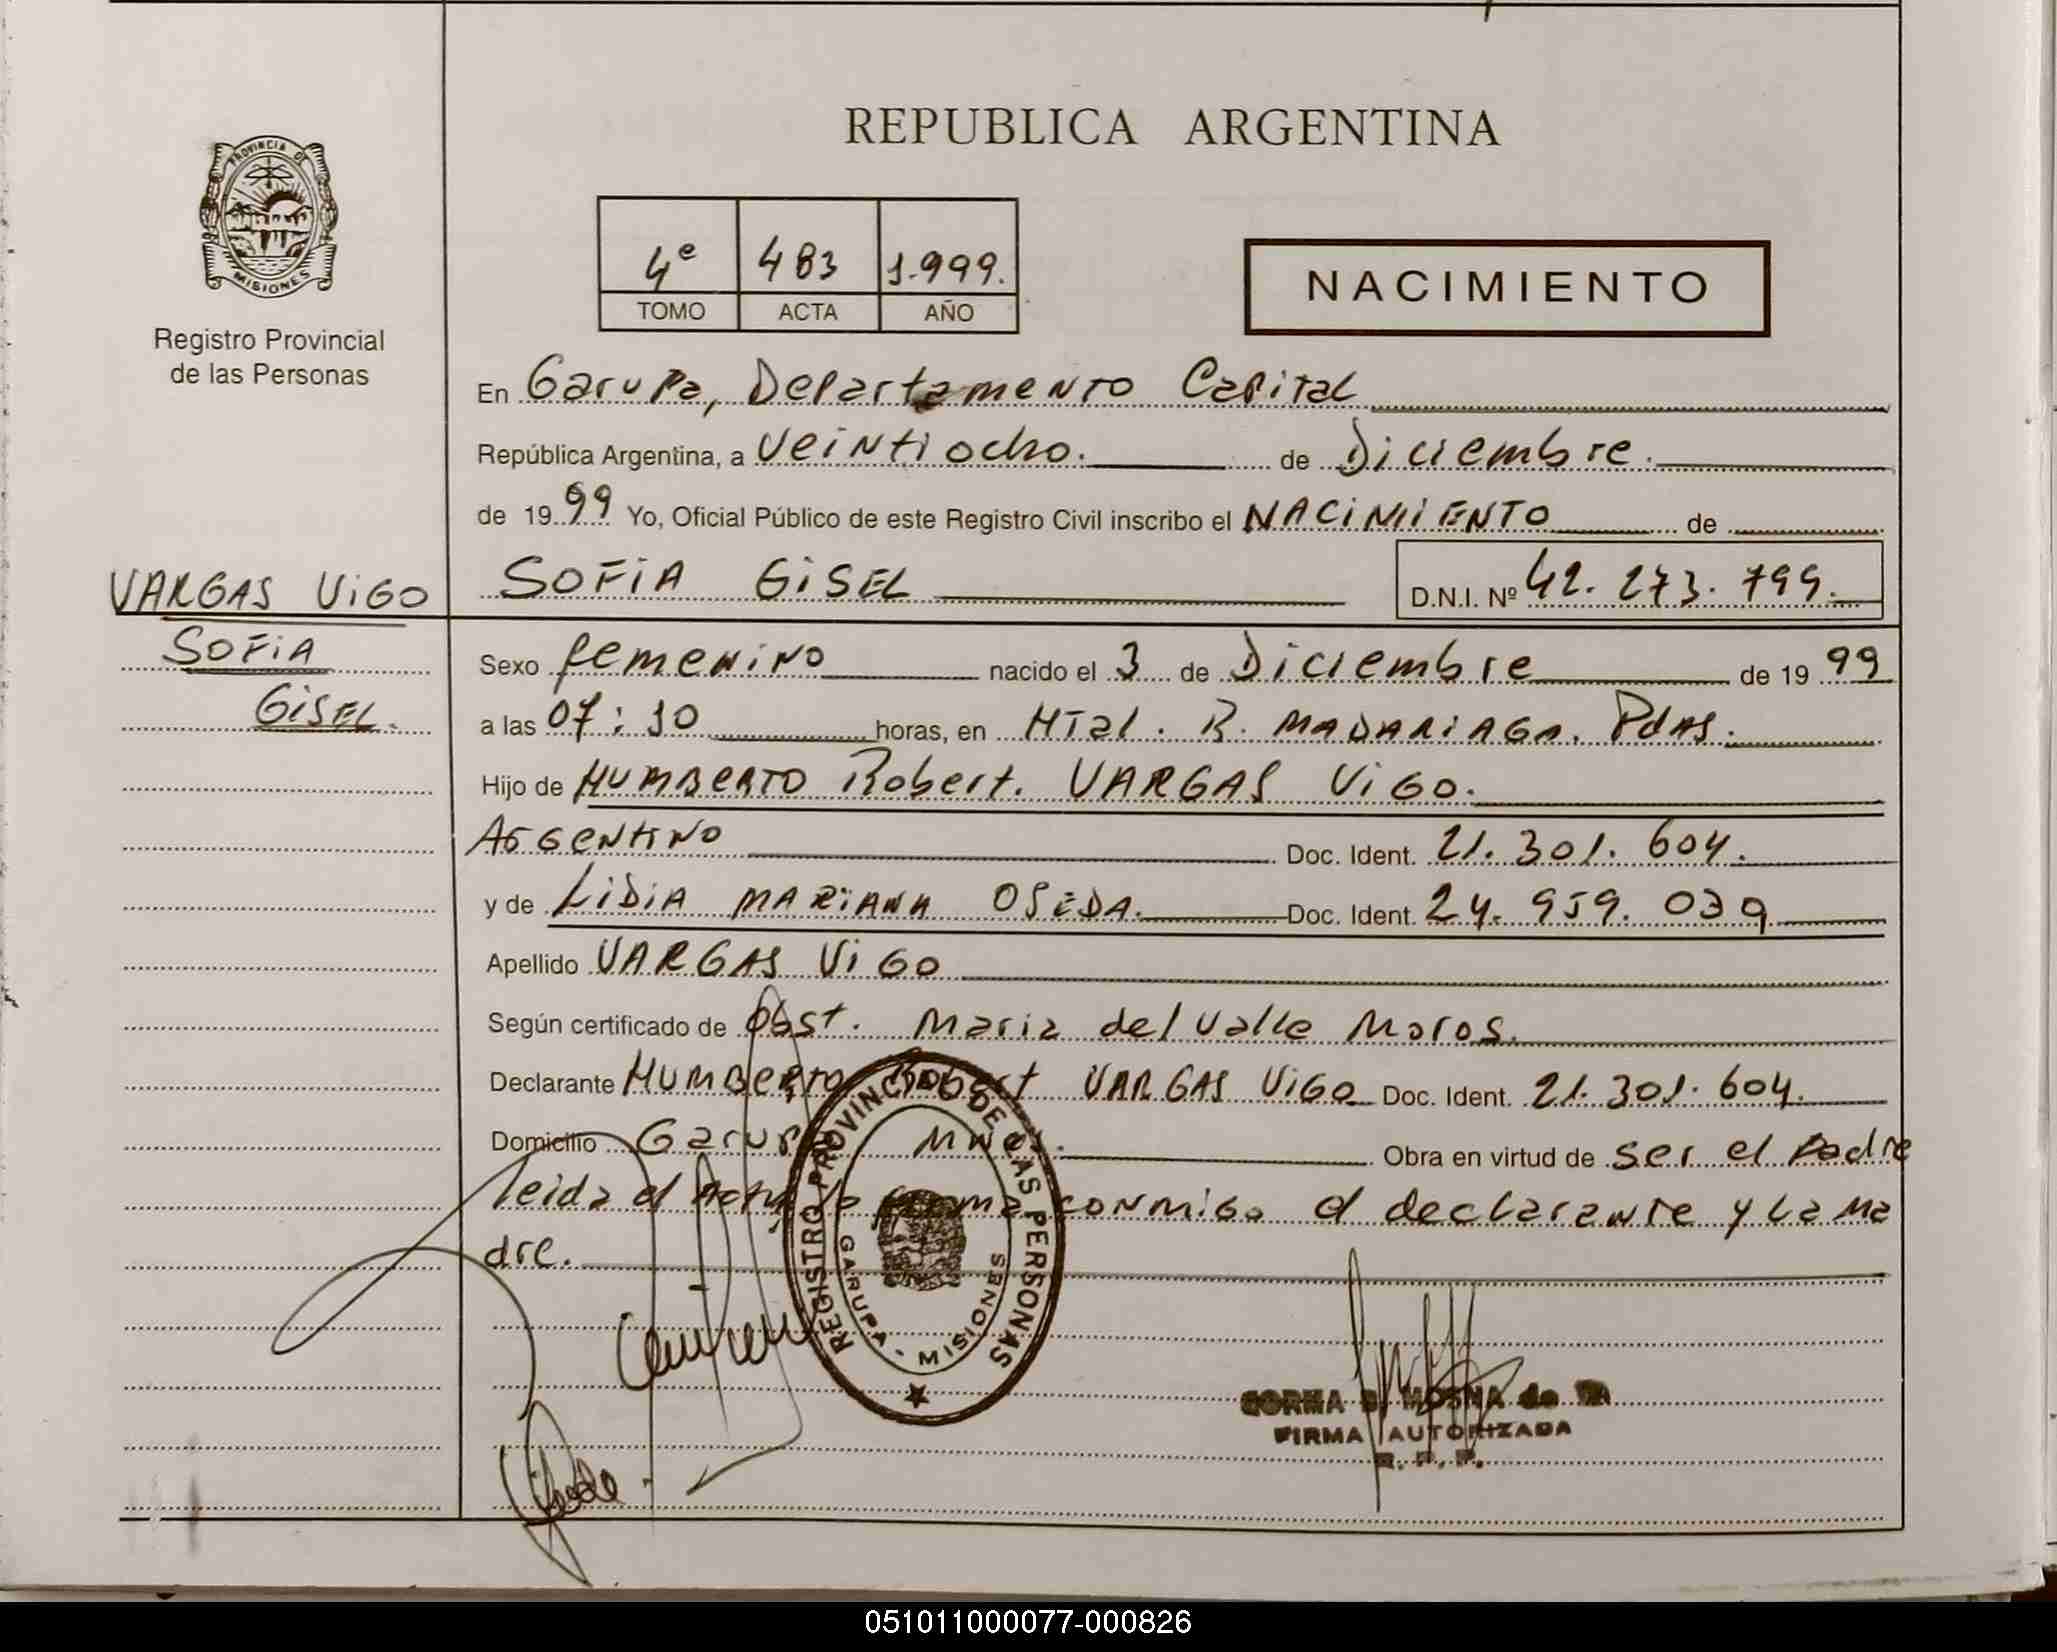 REPUBLICA ARGENTINA
PROVINCIA DE
MISIONES
Registro Provincial
de las Personas
4º 483 1.999.
TOMO ACTA AÑO
NACIMIENTO
En Garupa, Departamento Capital
República Argentina, a veintiocho. de Diciembre.
de 1999 Yo, Oficial Público de este Registro Civil inscribo el NACIMIENTO de
VARGAS VIGO
SOFIA GISEL D.N.I. Nº 42.273.799.
SOFIA
GISEL.
Sexo femenino nacido el 3 de Diciembre de 1999
a las 07:30 horas, en HTal. R. MADARIAGA. PdAS.
Hijo de HUMBERTO Robert. VARGAS ViGO.
ArGENTINO Doc. Ident. 21.301.604.
y de LIDIA MARIANA OSEDA. Doc. Ident. 24.959.039
Apellido VARGAS ViGO
Según certificado de Obst. Maria del Valle Moros.
Declarante HUMBERTO Robert VARGAS ViGO Doc. Ident. 21.301.604.
Domicilio Garupa Mnes. Obra en virtud de ser el Padre
leida el Acta la firma conmigo el declarante y la ma
dre.
REGISTRO PROVINCIAL DE LAS PERSONAS
GARUPA - MISIONES
MOSNA de
FIRMA AUTORIZADA
R. P. P.
051011000077-000826